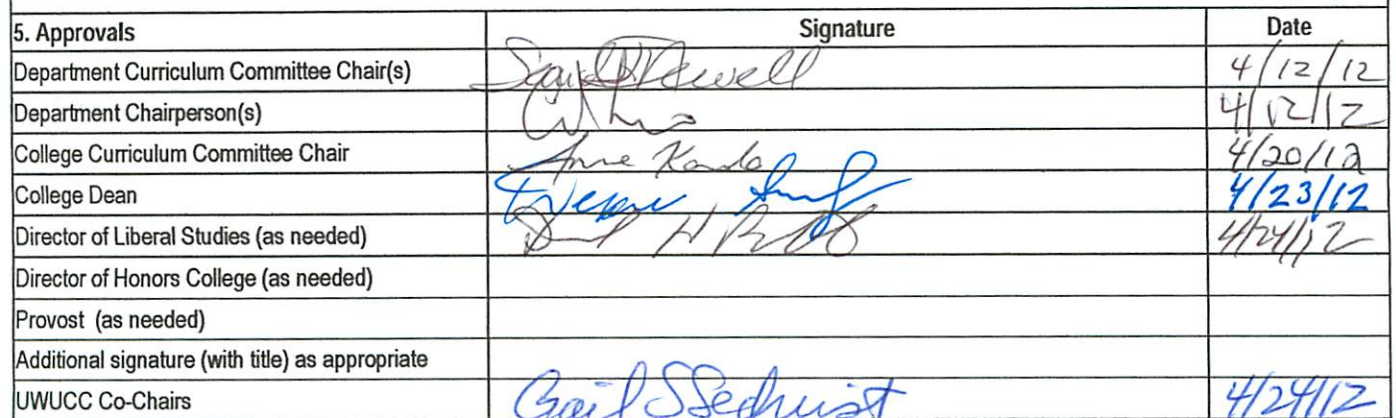 5. Approvals Signature Date
Department Curriculum Committee Chair(s) 4/12/12
Department Chairperson(s) 4/12/12
College Curriculum Committee Chair Anne Kondo 4/20/12
College Dean 4/23/12
Director of Liberal Studies (as needed) 4/24/12
Director of Honors College (as needed)
Provost (as needed)
Additional signature (with title) as appropriate
UWUCC Co-Chairs Gail S Sechrist 4/24/12